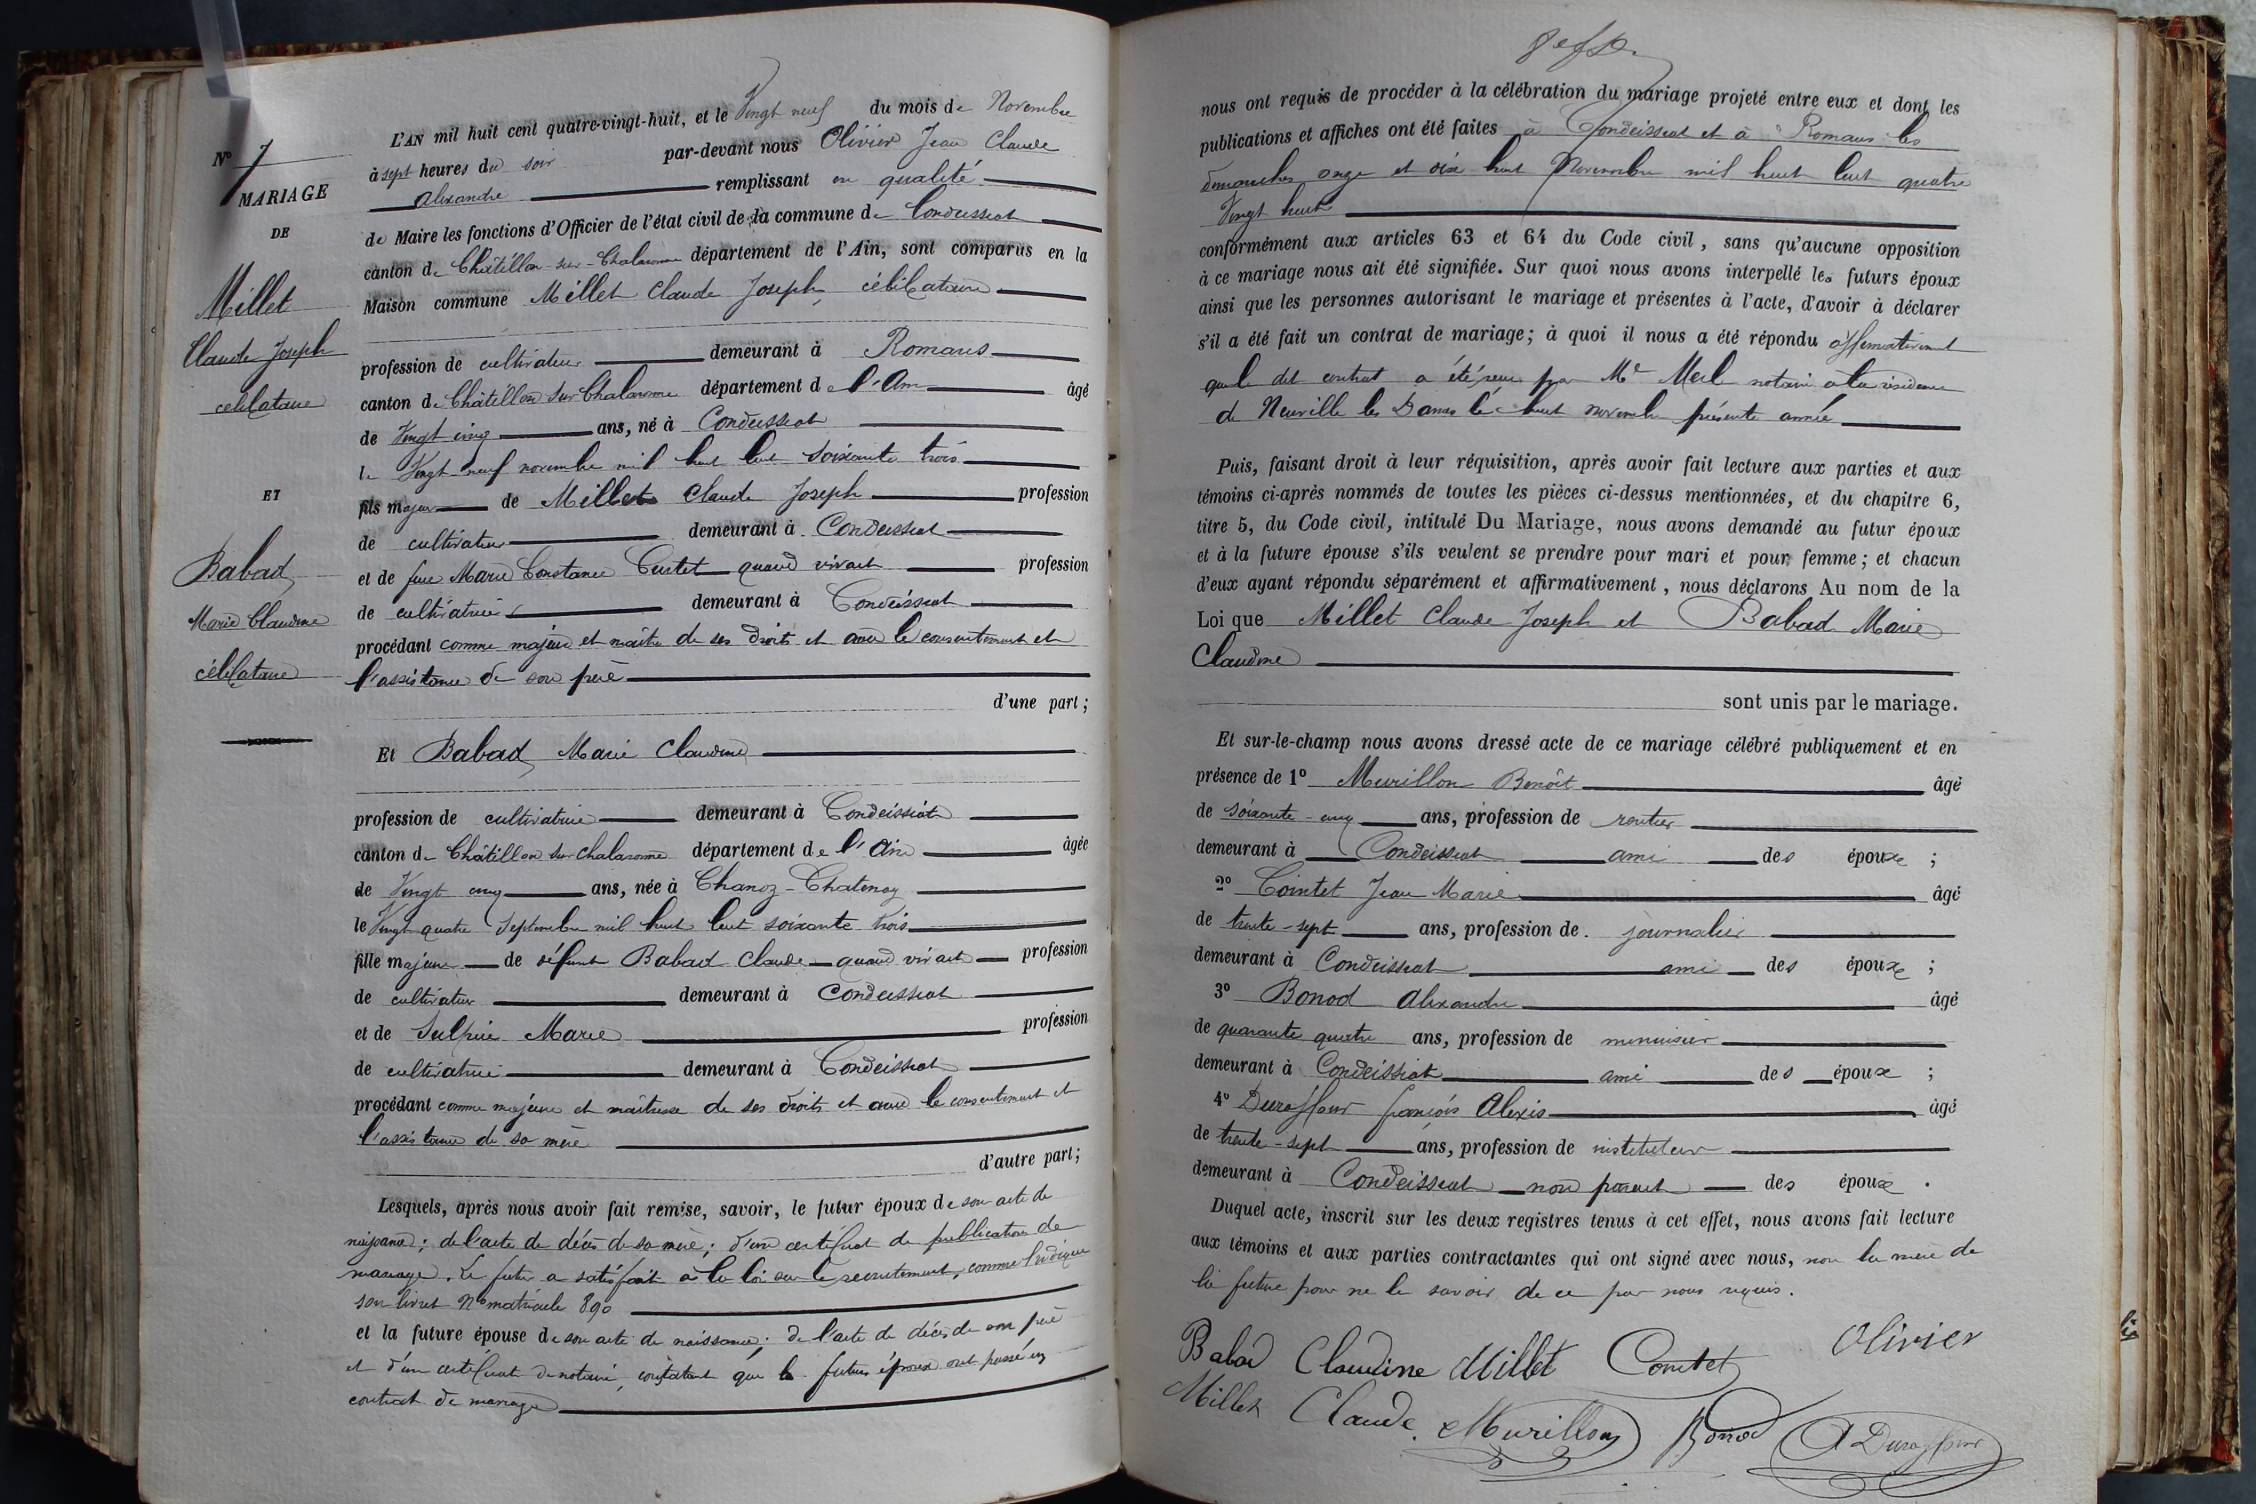 L'AN mil huit cent quatre-vingt-huit, et le Vingt neuf du mois de Novembre
à sept heures du soir par-devant nous Olivier Jean Claude
alexandre remplissant en qualité
de Maire les fonctions d'Officier de l'état civil de la commune de Condeissiat
canton de Châtillon-sur-Chalaronne département de l'Ain, sont comparus en la
Maison commune Millet Claude Joseph, célibataire
profession de cultivateur demeurant à Romans
canton de Châtillon sur Chalaronne département de l'Ain âgé
de Vingt cinq ans, né à Condeissiat
le Vingt neuf novembre mil huit Cent soixante trois
fils majeur de Millet Claude Joseph profession
de cultivateur demeurant à Condeissiat
et de feue Marie Constance Curtet quand vivait profession
de cultivatrice demeurant à Condeissiat
procédant comme majeur et maître de ses droits et avec le consentement et
l'assistance de son père
d'une part ;
Et Babad Marie Claudine
profession de cultivatrice demeurant à Condeissiat
canton de Châtillon sur Chalaronne département de l'Ain âgée
de Vingt cinq ans, née à Chanoz-Chatenay
le Vingt quatre Septembre mil huit Cent soixante trois
fille majeure de défunt Babad Claude quand vivait profession
de cultivateur demeurant à Condeissiat
et de Sulpice Marie profession
de cultivatrice demeurant à Condeissiat
procédant comme majeure et maîtresse de ses droits et avec le consentement et
l'assistance de sa mère
d'autre part ;
Lesquels, après nous avoir fait remise, savoir, le futur époux de son acte de
naissance ; de l'acte de décès de sa mère ; d'un certificat de publication de
mariage. Le futur a satisfait à la loi sur le recrutement, comme l'indique
son livret No matricule 890
et la future épouse de son acte de naissance ; de l'acte de décès de son père
et d'un certificat de notaire, constatant que les futurs époux ont passé un
contrat de mariage
No 7
MARIAGE
DE
Millet
Claude Joseph
célibataire
ET
Babad
Marie Claudine
célibataire
nous ont requis de procéder à la célébration du mariage projeté entre eux et dont les
publications et affiches ont été faites à Condeissiat et à Romans les
dimanches onze et dix huit Novembre mil huit Cent quatre
Vingt huit
conformément aux articles 63 et 64 du Code civil, sans qu'aucune opposition
à ce mariage nous ait été signifiée. Sur quoi nous avons interpellé les futurs époux
ainsi que les personnes autorisant le mariage et présentes à l'acte, d'avoir à déclarer
s'il a été fait un contrat de mariage ; à quoi il nous a été répondu affirmativement
que le dit contrat a été reçu par Me notaire à la résidence
de Neuville les Dames le huit novembre présente année
Puis, faisant droit à leur réquisition, après avoir fait lecture aux parties et aux
témoins ci-après nommés de toutes les pièces ci-dessus mentionnées, et du chapitre 6,
titre 5, du Code civil, intitulé Du Mariage, nous avons demandé au futur époux
et à la future épouse s'ils veulent se prendre pour mari et pour femme ; et chacun
d'eux ayant répondu séparément et affirmativement, nous déclarons Au nom de la
Loi que Millet Claude Joseph et Babad Marie
Claudine
sont unis par le mariage.
Et sur-le-champ nous avons dressé acte de ce mariage célébré publiquement et en
présence de 1o Murillon Benoît âgé
de soixante-cinq ans, profession de rentier
demeurant à Condeissiat ami des époux ;
2o Cointet Jean Marie âgé
de trente-sept ans, profession de journalier
demeurant à Condeissiat ami des époux ;
3o Bonod Alexandre âgé
de quarante quatre ans, profession de menuisier
demeurant à Condeissiat ami des époux ;
4o Duraffour françois Alexis âgé
de trente-sept ans, profession de instituteur
demeurant à Condeissiat non parent des époux.
Duquel acte, inscrit sur les deux registres tenus à cet effet, nous avons fait lecture
aux témoins et aux parties contractantes qui ont signé avec nous, non la mère de
la future pour ne le savoir de ce par nous requis.
Babad Claudine Millet Cointet Olivier
Millet Claude Murillon Bonod A Duraffour